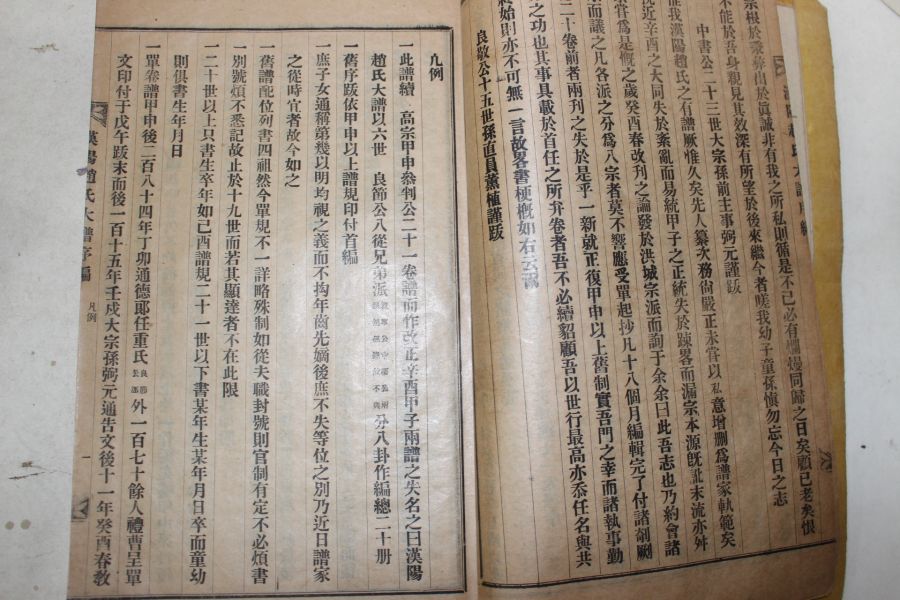 宗根於彝弊出於眞誠非有我之所私則循是不已必有爛熳同歸之日矣顧已老矣恨
不能於吾身親見其效深有所望於後來繼今者嗟我幼子童孫愼勿忘今日之志
中書公二十三世大宗孫前主事弼元謹跋
惟我漢陽趙氏之有譜厥惟久矣先人纂次務尙嚴正未嘗以私意增刪爲譜家軌範矣
近辛酉之大同失於紊亂而易統甲子之正統失於疎畧而漏宗本源旣訛末流亦舛
嘗爲是慨之歲癸酉春改刊之論發於洪城宗派而詢于余余曰此吾志也乃約會諸
而議之凡各派之分爲八宗者莫不響應受單起抄凡十八個月編輯完了付諸剞劂
二十卷前者兩刊之失於是乎一新就正復甲申以上舊制實吾門之幸而諸執事勤
之功也其事具載於首任之所弁卷者吾不必續貂顧吾以世行最高亦忝任名與共
終始則亦不可無一言故畧書梗槪如右云爾
良敬公十五世孫直員薰植謹跋
凡例
一此譜續 高宗甲申叅判公二十一卷譜而作改正辛酉甲子兩譜之失名之曰漢陽
趙氏大譜以六世 良節公八從兄弟派分八卦作編總二十册
一舊序跋依甲申以上譜規印付首編
一庶子女通稱第幾以明均視之義而不拘年齒先嫡後庶不失等位之別乃近日譜家
之從時宜者故今如之
一舊譜配位列書四祖然今單規不一詳略殊制如從夫職封號則官制有定不必煩書
一別號煩不悉記故止於十九世而若其顯達者不在此限
一二十世以上只書生卒年如己酉譜規二十一世以下書某年生某年月日卒而童幼
則俱書生年月日
一單卷譜甲申後二百八十四年丁卯通德郞任重氏良節公派外一百七十餘人禮曹呈單
文印付于戊午跋末而後一百十五年壬戌大宗孫弼元通告文後十一年癸酉春敎
漢陽趙氏大譜序編 凡例 一